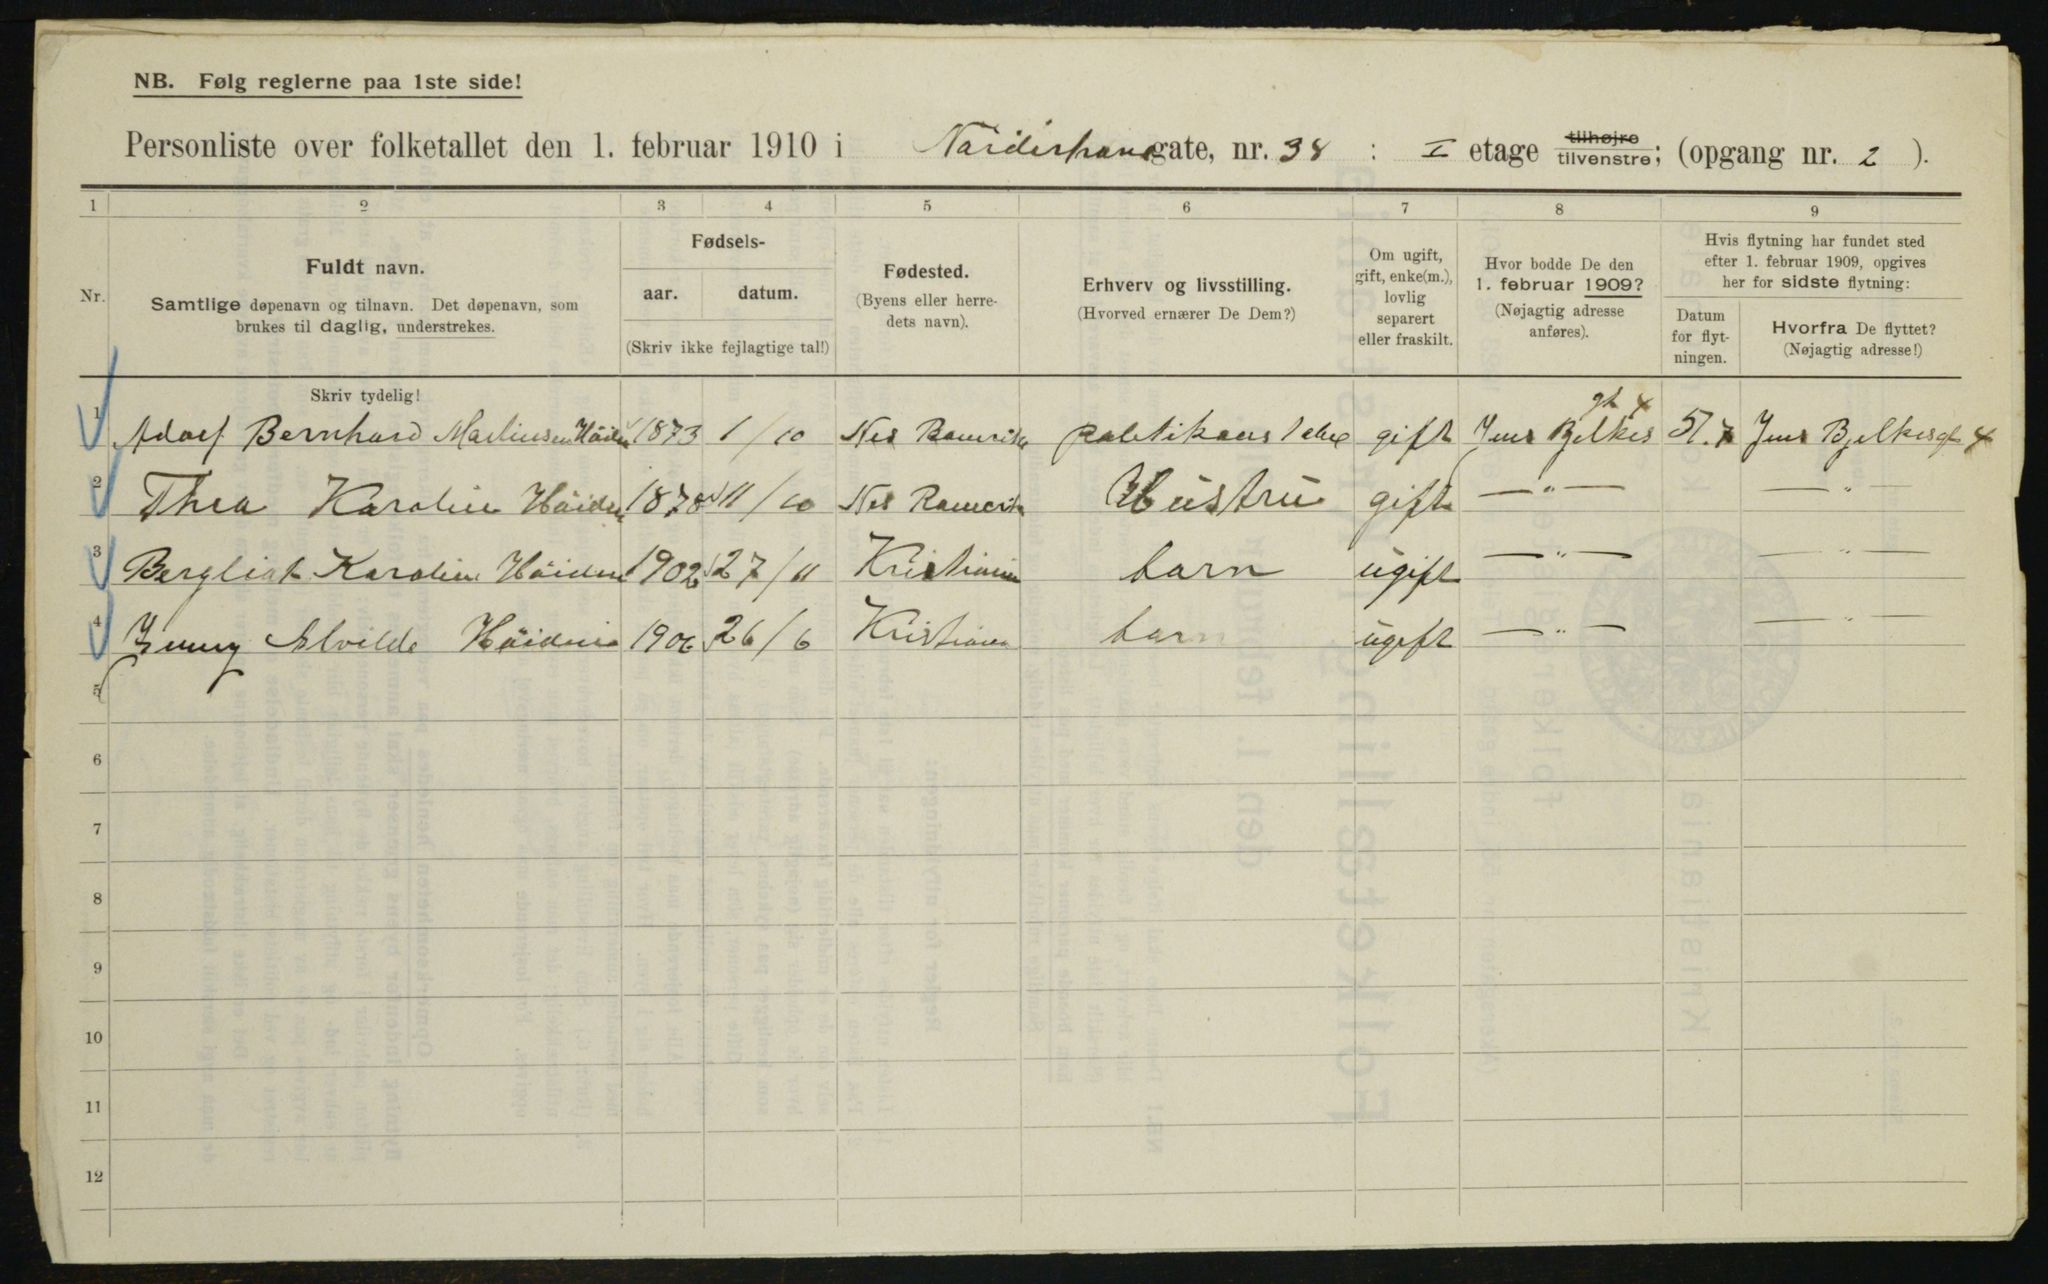 NB. Følg reglerne paa 1ste side!
Personliste over folketallet den 1. februar 1910 i gate, nr. 38 : I etage tilhøjre tilvenstre; (opgang nr. 2 ).
1 2 3 4 5 6 7 8 9
Nr.
Fuldt navn.
Samtlige døpenavn og tilnavn. Det døpenavn, som
brukes til daglig, understrekes.
Fødsels-
aar. datum.
(Skriv ikke fejlagtige tal!)
Fødested.
(Byens eller herre-
dets navn).
Erhverv og livsstilling.
(Hvorved ernærer De Dem?)
Om ugift,
gift, enke(m.),
lovlig
separert
eller fraskilt.
Hvor bodde De den
1. februar 1909?
(Nøjagtig adresse
anføres).
Hvis flytning har fundet sted
efter 1. februar 1909, opgives
her for sidste flytning:
Datum
for flyt-
ningen.
Hvorfra De flyttet?
(Nøjagtig adresse!)
Skriv tydelig!
1 Adolf Bernhard Martinsen 1873 1/10 Nes gift Jens Bjelkes gt 4 Jens Bjelkes gt 4
2 Thea Karoline 1878 11/10 Nes Hustru gift — " — — " —
3 Bergliot Karoline 1902 27/11 Kristiania barn ugift — " — — " —
4 Jenny Alvilde 1906 26/6 Kristiania barn ugift — " — — " —
5
6
7
8
9
10
11
12